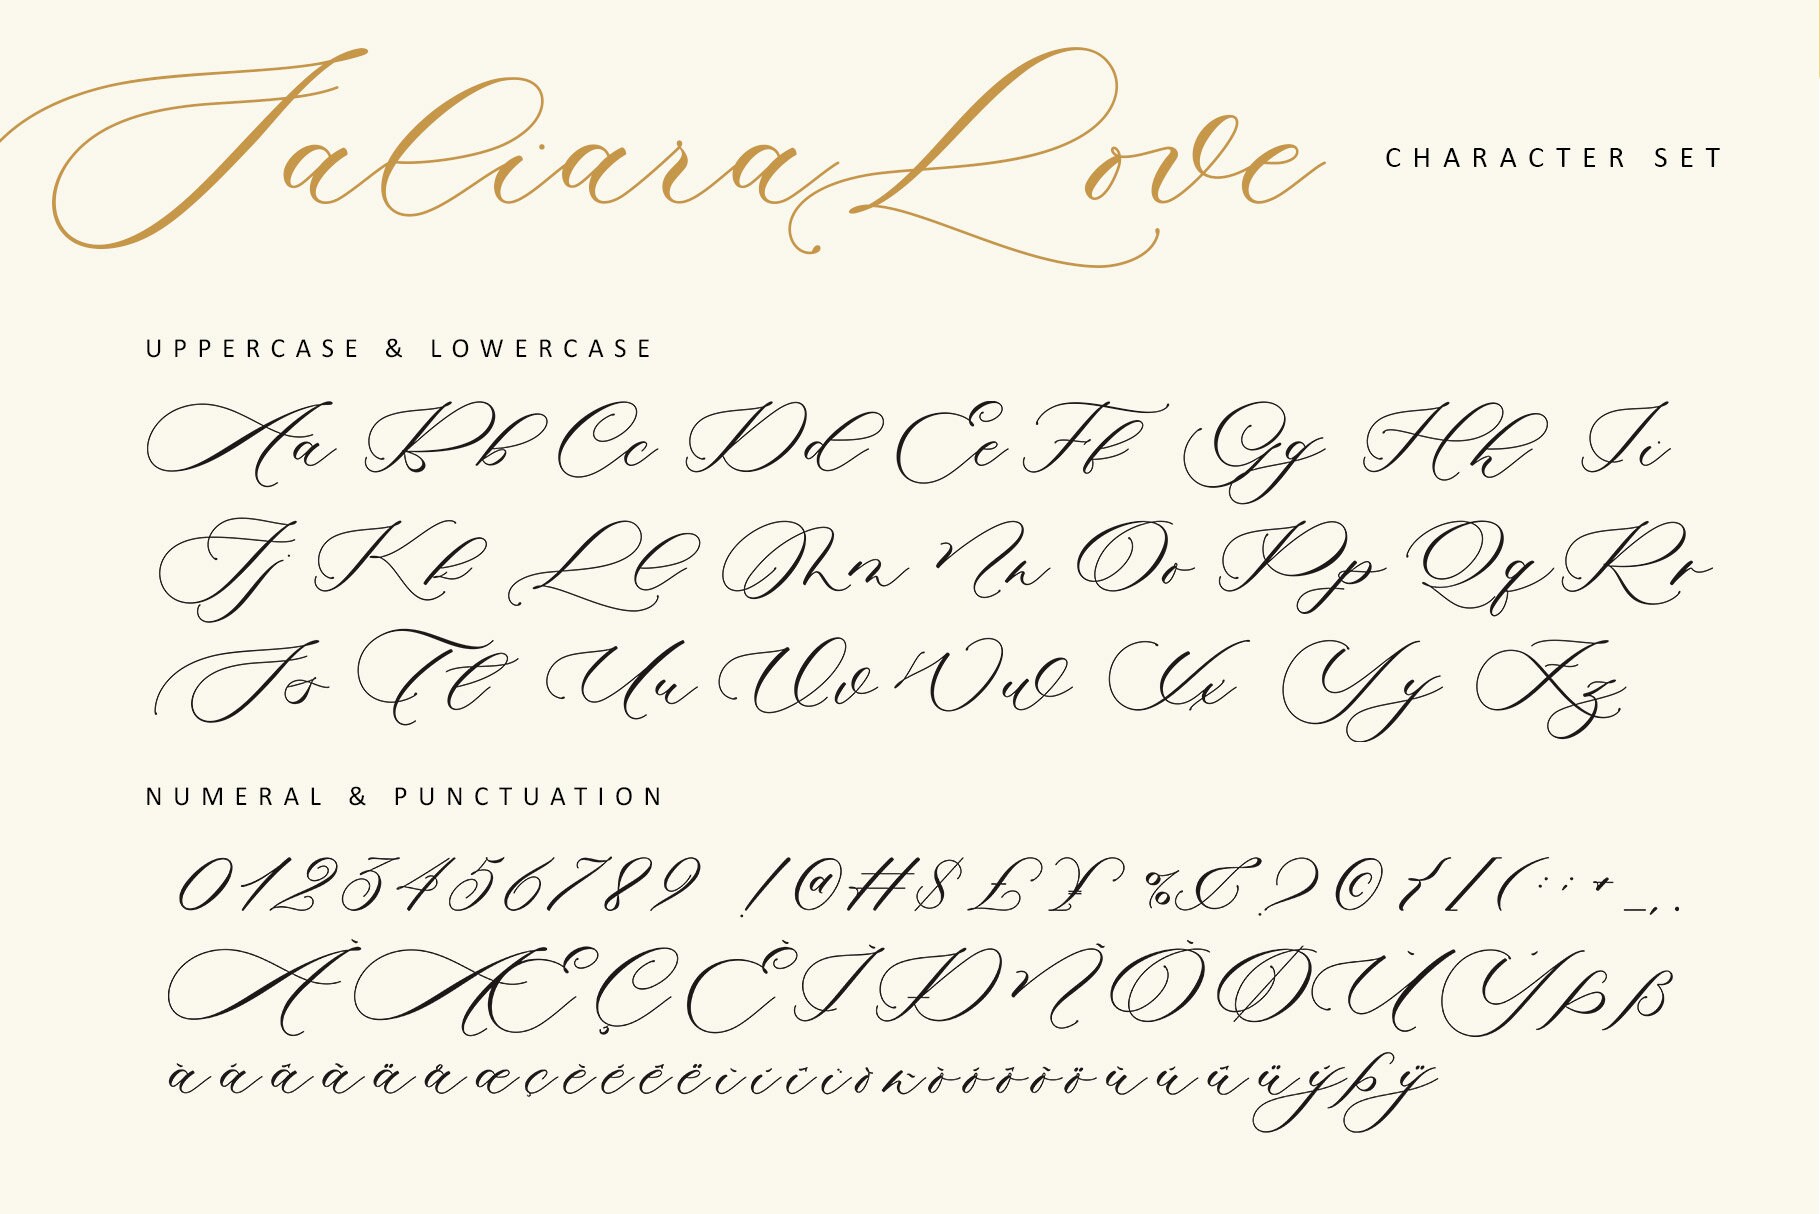 Saliara Love CHARACTER SET
UPPERCASE & LOWERCASE
Aa Bb Cc Dd Ee Ff Gg Hh Ii
Jj Kk Ll Mm Nn Oo Pp Qq Rr
Ss Tt Uu Vv Ww Xx Yy Zz
NUMERAL & PUNCTUATION
0123456789 !@#$£¥ %&?©{[(:;+_,.
ÀÆÇÈÌÐÑÒØÙÝÞß
àáâãäåæçèéêëìíîïðñòóôõöùúûüýþÿ